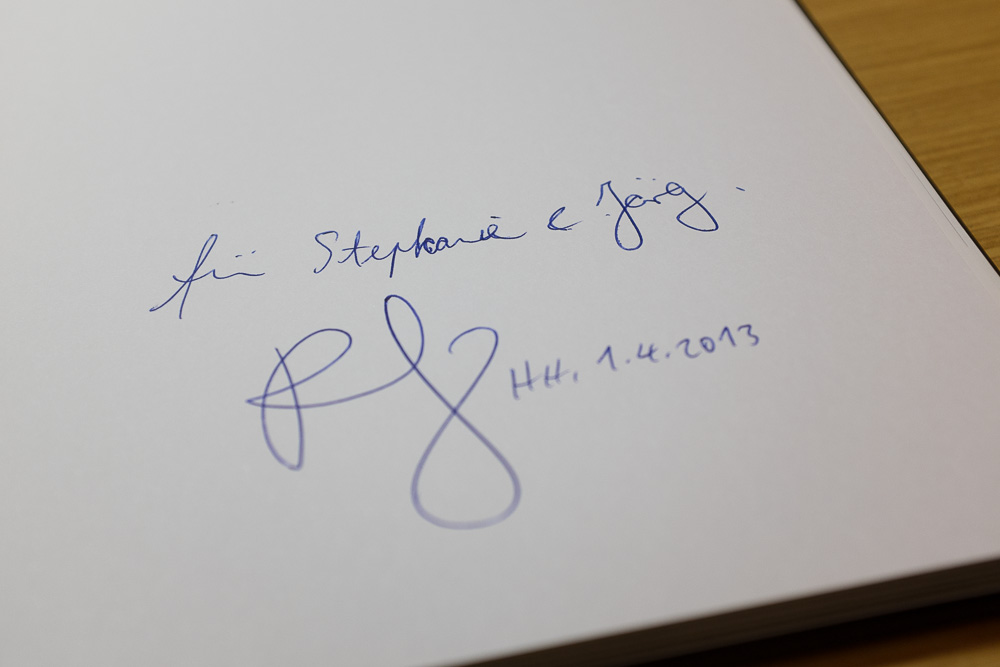 für Stephanie & Jörg.
HH, 1.4.2013